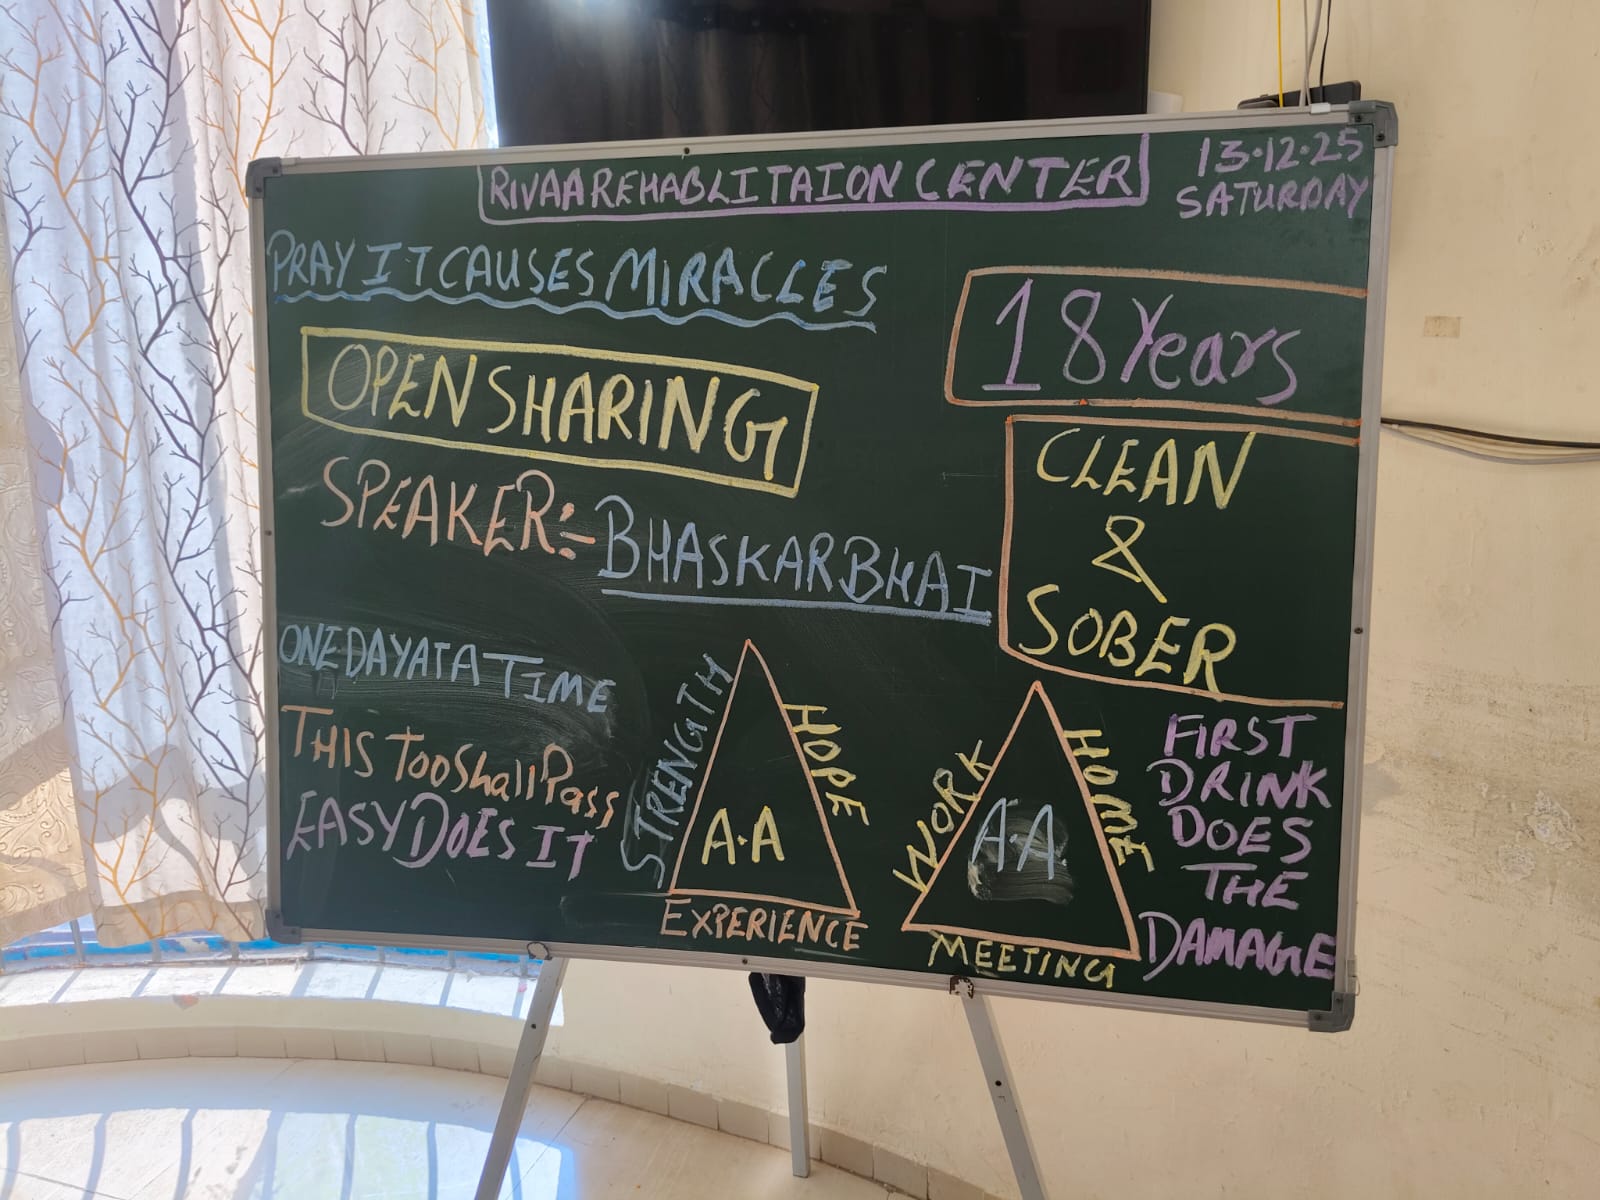 RIVAA REHABLITAION CENTER
13.12.25
SATURDAY
PRAY IT CAUSES MIRACLES
18 Years
OPEN SHARING
CLEAN
&
SOBER
SPEAKER:- BHASKARBHAI
ONE DAY AT A TIME
THIS TOO Shall Pass
EASY DOES IT
STRENGTH
HOPE
A.A
EXPERIENCE
WORK
HOME
A.A
MEETING
FIRST
DRINK
DOES
THE
DAMAGE